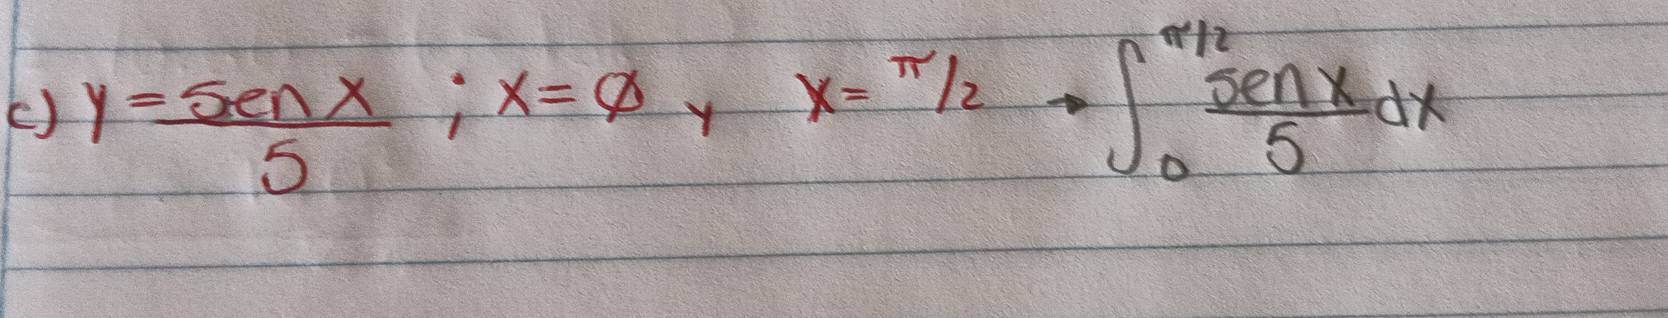 c) y = sen x / 5 ; x = 0 y x = π/2 → ∫₀^π/2 sen x / 5 dx